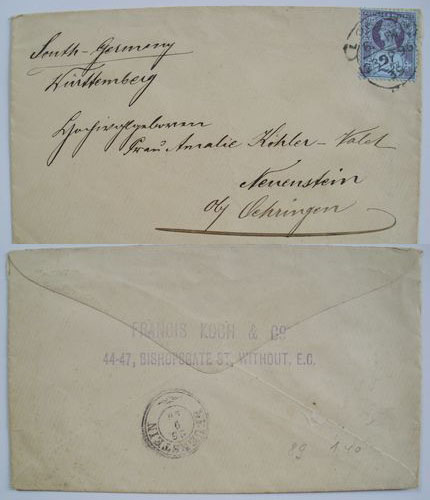 South-Germany
Württemberg
Hochwohlgeboren
Frau Amalie Köhler-Valet
Neuenstein
o/ Oehringen
2½
FRANCIS KOCH & Co
44-47, BISHOPSGATE ST, WITHOUT, E.C.
NEUENSTEIN